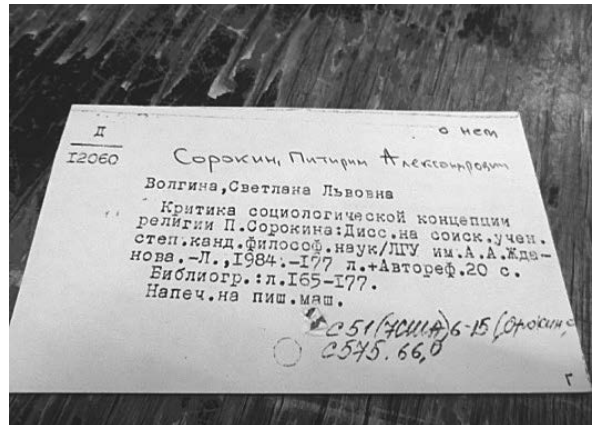 Д
о нем
I2060
Сорокин, Питирим Александрович
Волгина,Светлана Львовна
Критика социологической концепции
религии П.Сорокина:Дисс.на соиск.учен.
степ.канд.философ.наук/ЛГУ им.А.А.Жда-
нова.-Л.,1984.-I77 л.+Автореф.20 с.
Библиогр.:л.I65-I77.
Напеч.на пиш.маш.
С51(7США)6-15(Сорокин,0
С575.66,0
г